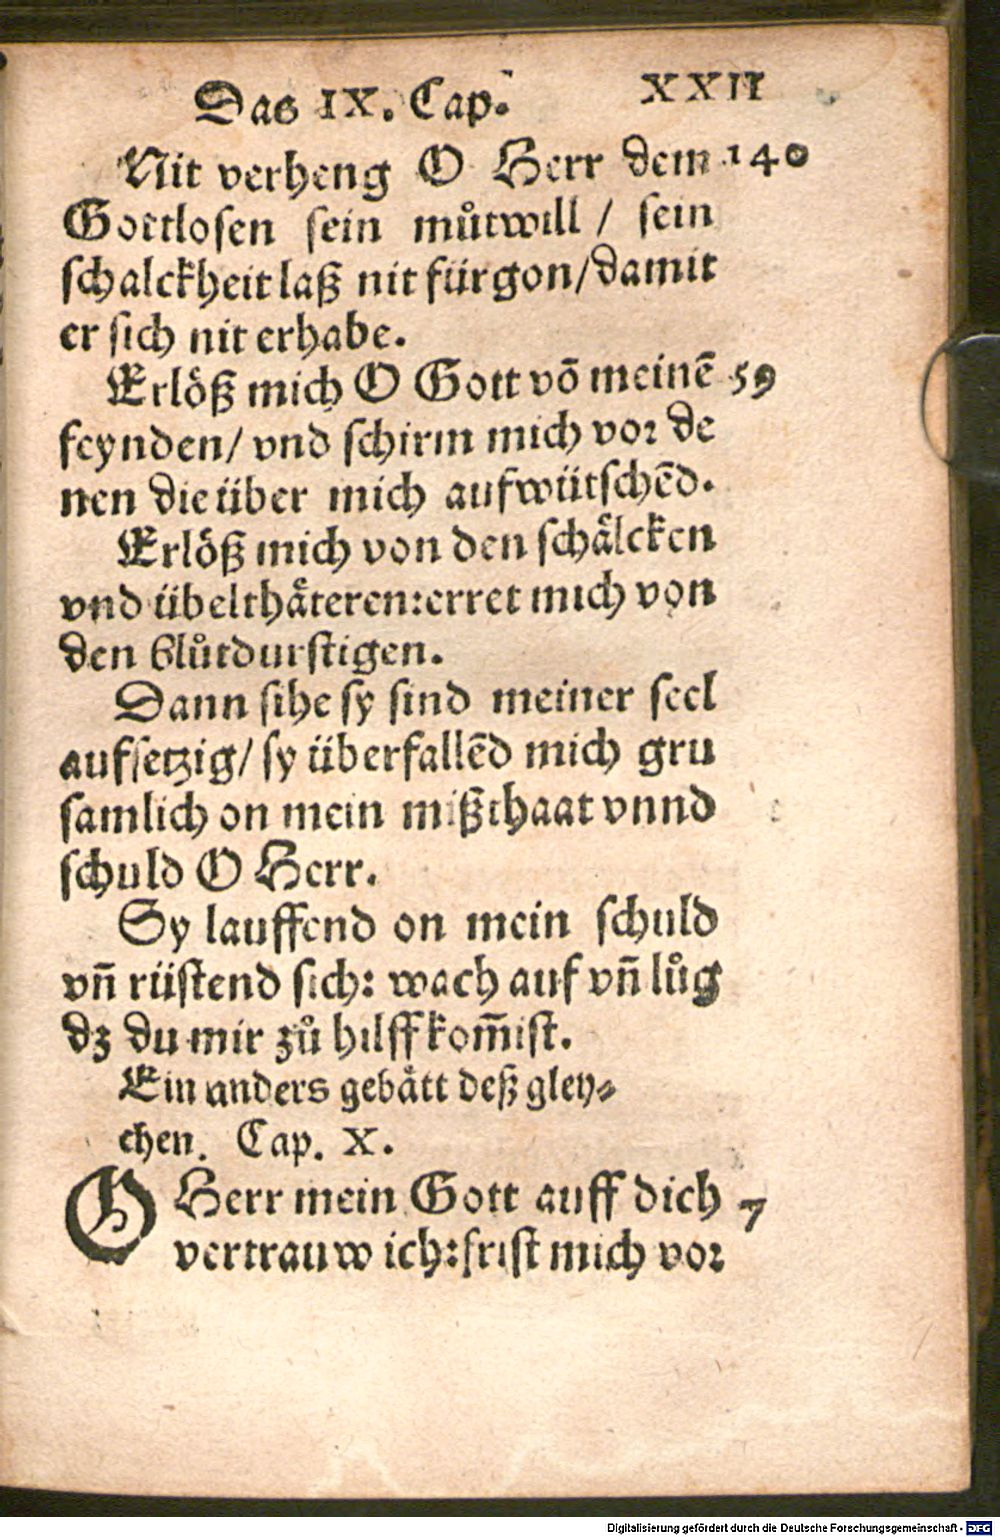 Das IX. Cap. XXII
Nit verheng O Herr dem 140
Gottlosen sein můtwill / sein
schalckheit laß nit fürgon/damit
er sich nit erhabe.
Erlöß mich O Gott võ meinẽ 59
feynden/ vnd schirm mich vor de
nen die über mich aufwütschẽd.
Erlöß mich von den schaͤlcken
vnd übelthaͤteren:erret mich von
den blůtdurstigen.
Dann sihe sy sind meiner seel
aufsetzig/ sy überfallẽd mich gru
samlich on mein mißthaat vnnd
schuld O Herr.
Sy lauffend on mein schuld
vñ rüstend sich: wach auf vñ lůg
dz du mir zů hilff kom̃ist.
Ein anders gebaͤtt deß gley⸗
chen. Cap. X.
O Herr mein Gott auff dich 7
vertrauw ich:frist mich vor
Digitalisierung gefördert durch die Deutsche Forschungsgemeinschaft - DFG